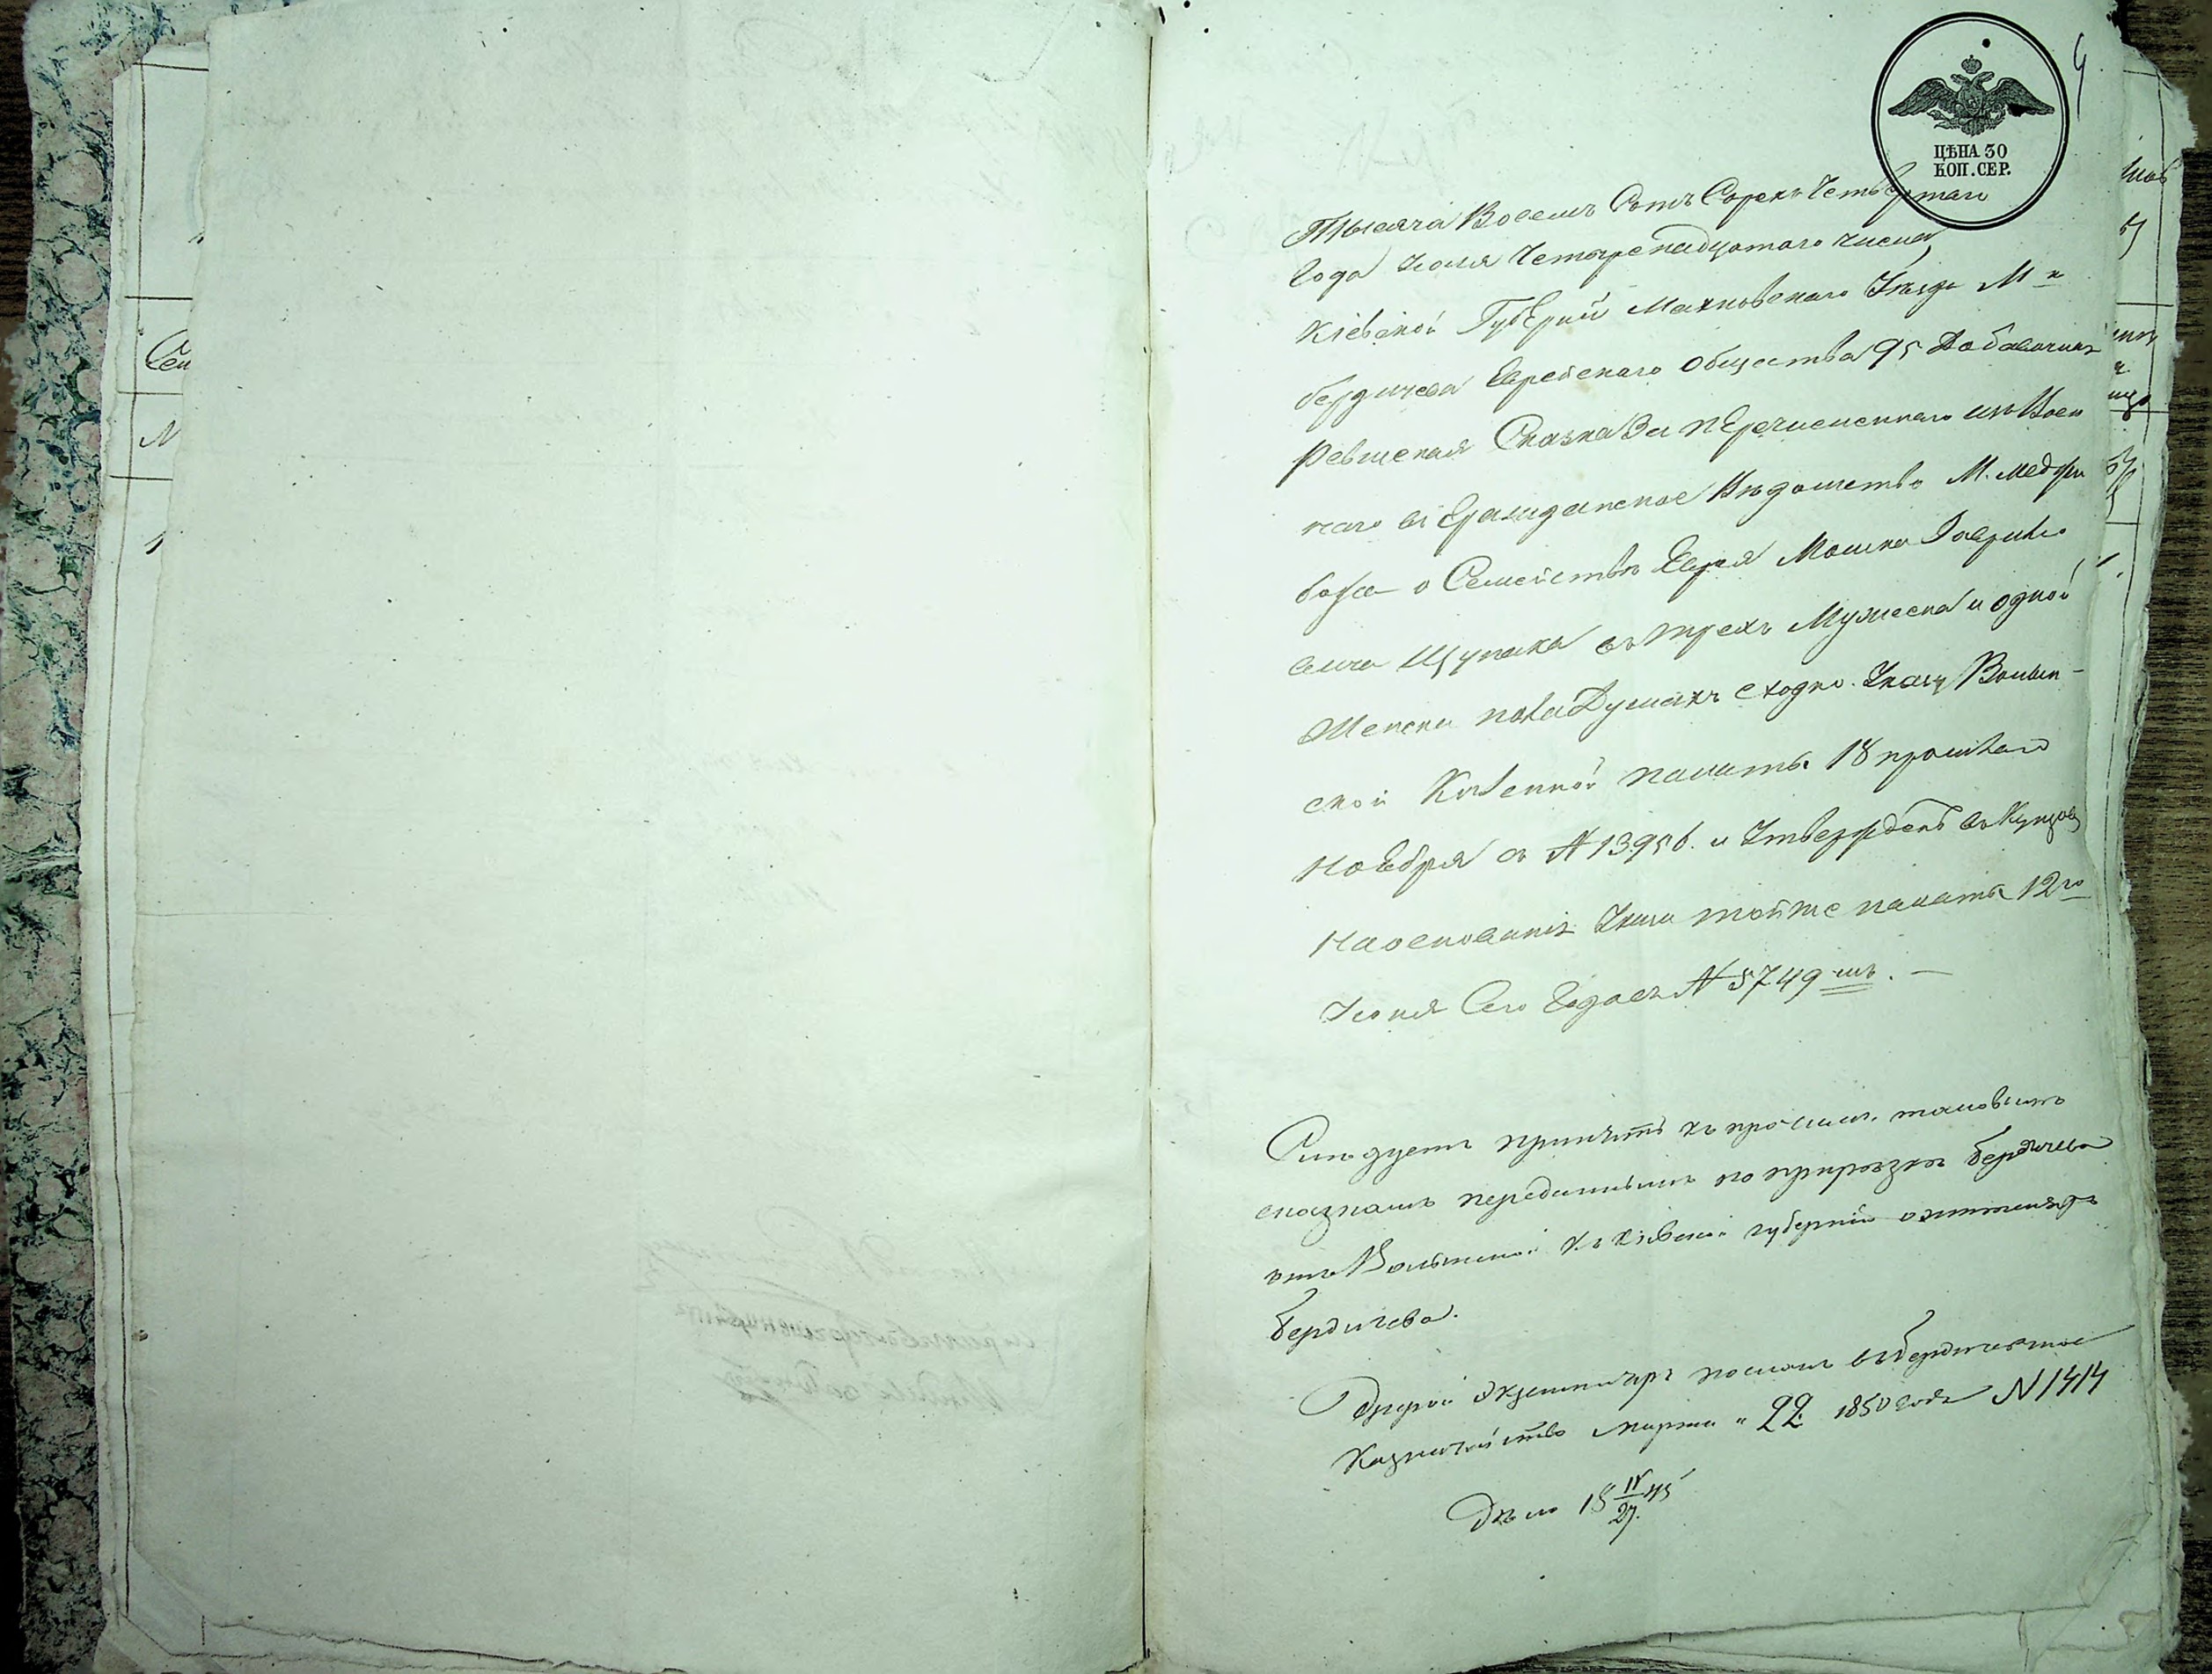 4
ЦѢНА 30
КОП. СЕР.
Тысяча Восемь Сотъ Сорокъ Четвертаго
Года Іюля Четыренадцатого числа,
Кіевской Губерніи Махновскаго Уѣзда М-ка
Бердичева Еврейскаго Общества 95 Добавочная
Ревизская Сказка За перечисленнаго изъ Воен
наго въ Гражданское Вѣдомство М. Меджи
божа о Семействѣ Еврея Мошка
вича Щупака въ трехъ Мужеска и одной
Женска пола Душахъ сходно. Указу Волын-
ской Казенной палаты 18 прошлаго
Ноября за N 13956. и Утвержденъ въ Купцы
На основаніи Указа тойже палаты 12го
Іюля Сего Года за N 5749мъ. —
Слѣдуетъ принять къ прочимъ таковымъ
сказкамъ переданнымъ по Бердичева
отъ Волынской къ Кіевской губерніи о жителяхъ
Бердичева.
Другой экземпляръ посланъ въ Бердичевское
Казначейство марта " 22 1850 года N 1414
Дѣло 15